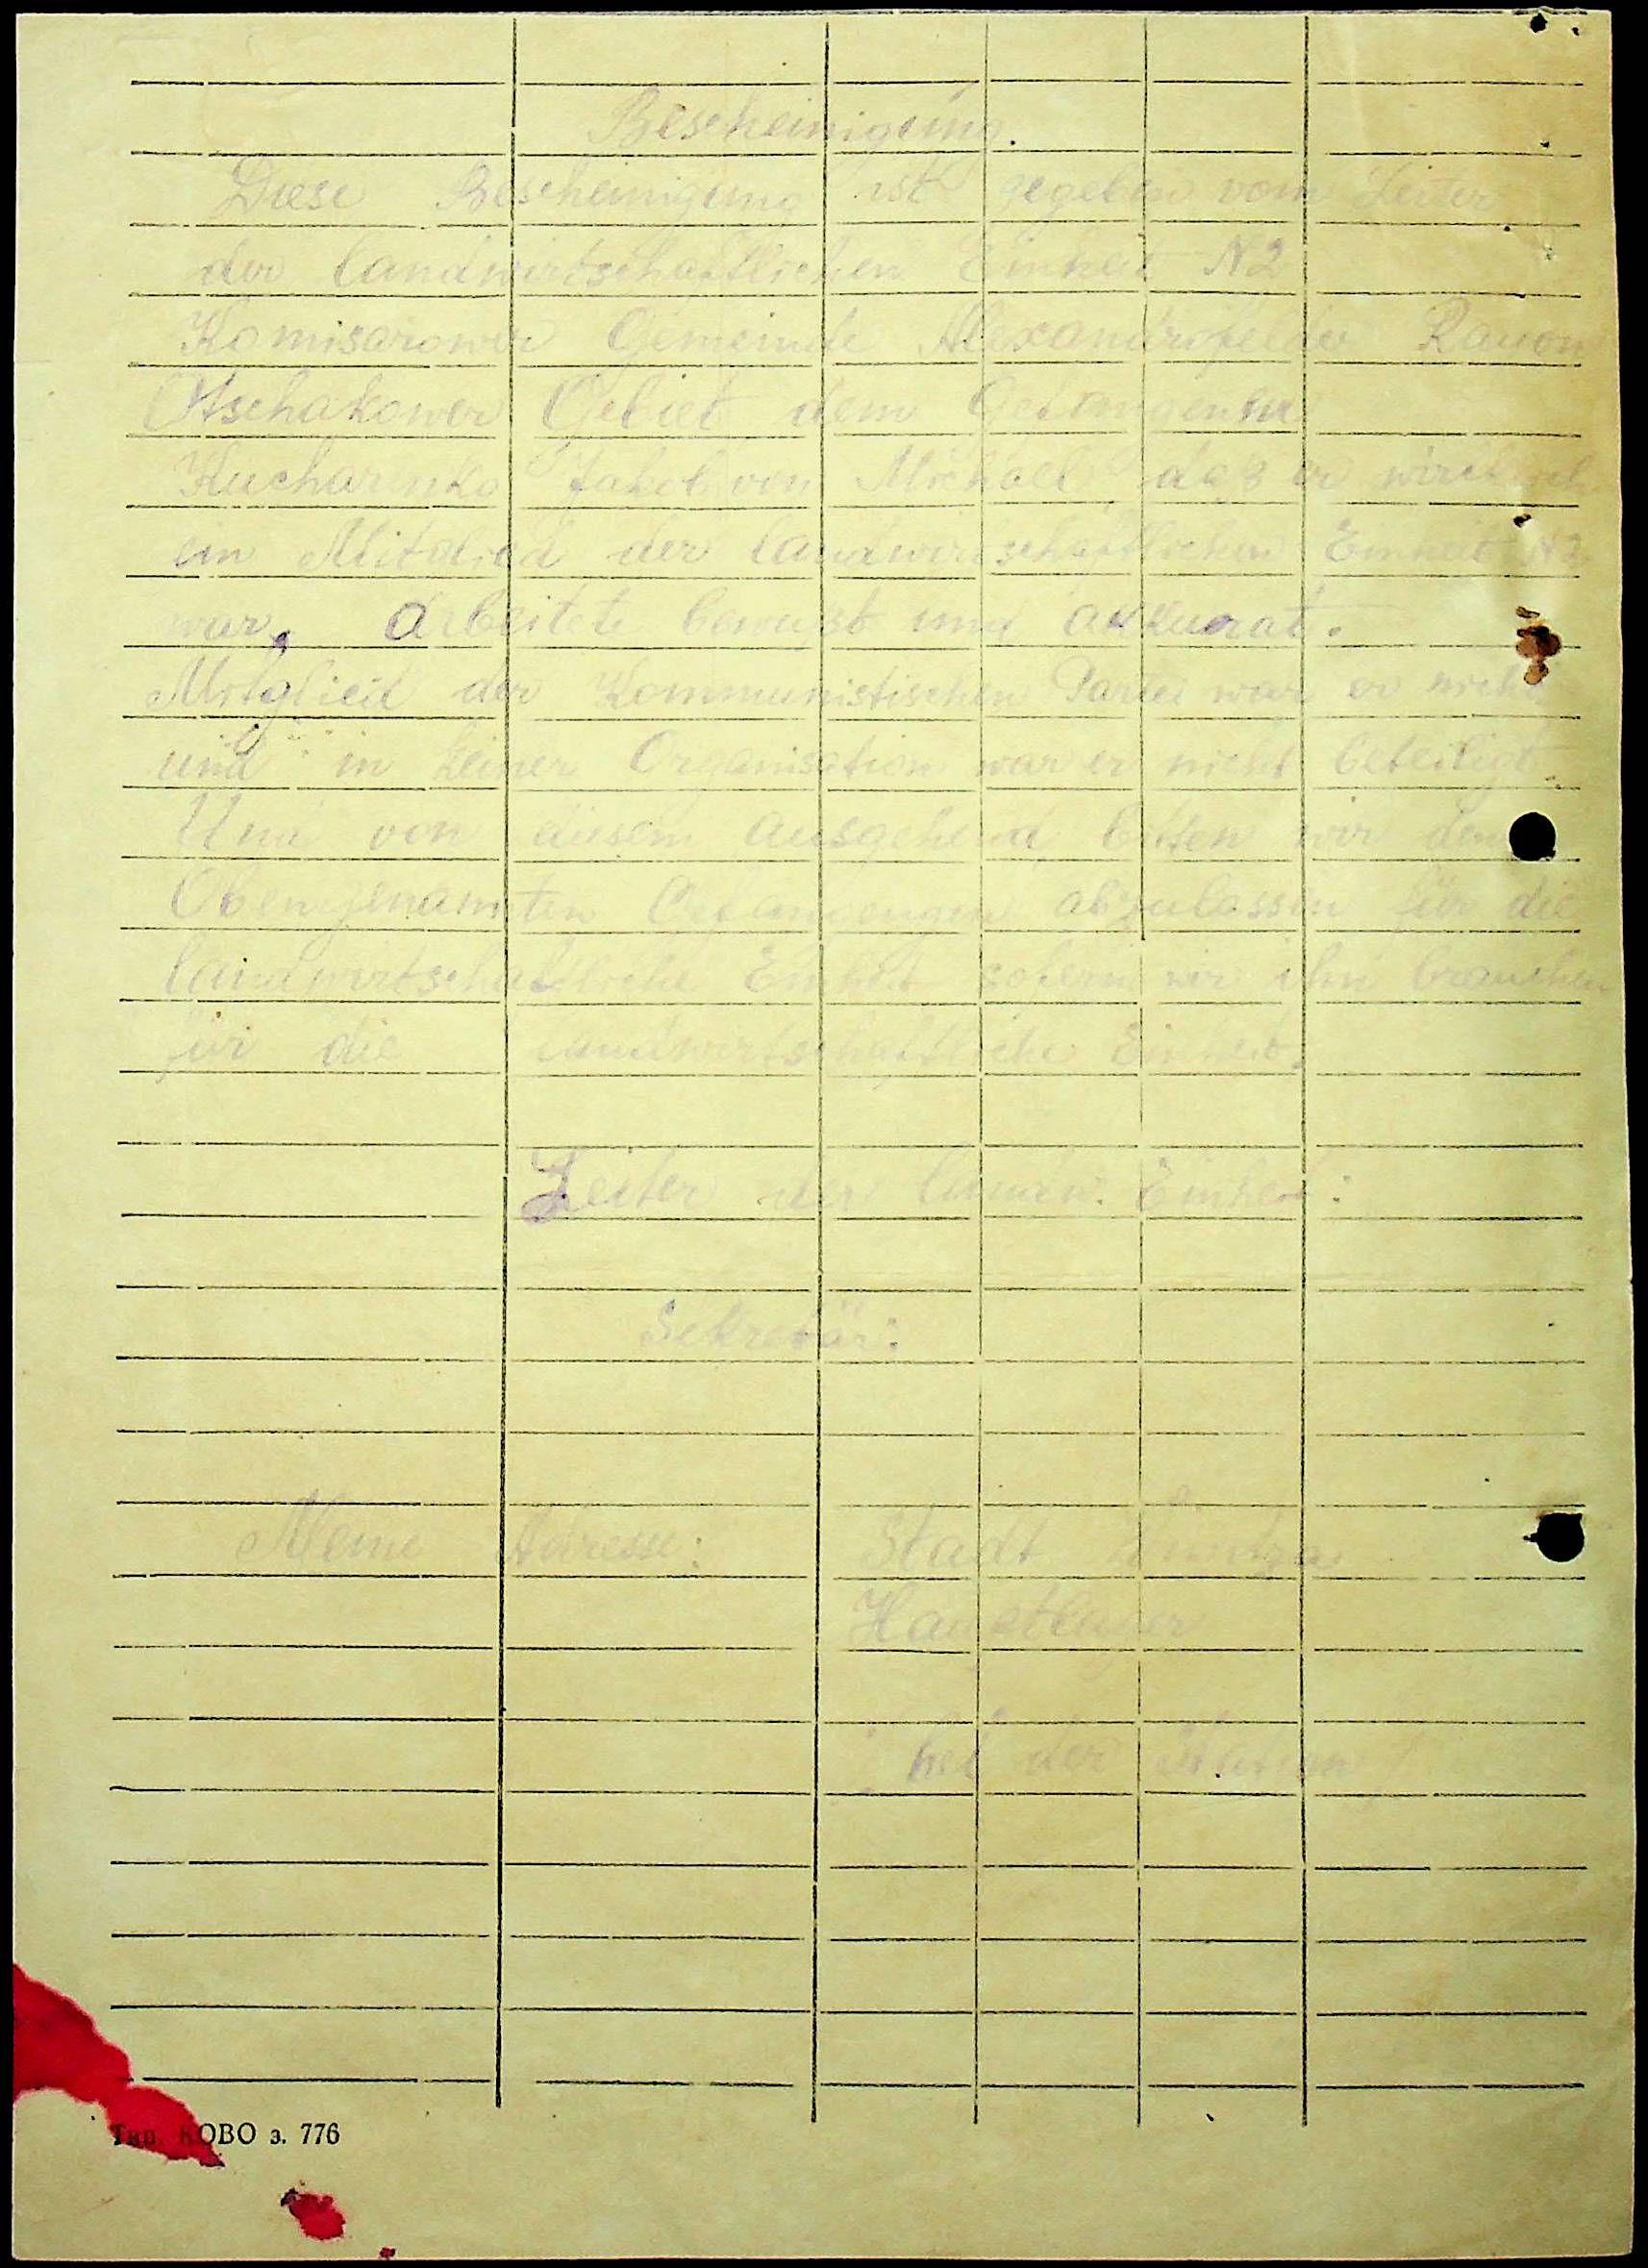 Bescheinigung.
Diese Bescheinigung ist gegeben vom Leiter
der landwirtschaftlichen Einheit N2
Komisarower Gemeinde Alexandrofelder Rayon
Otschakower Gebiet dem Gefangenen
Kucharenko Jakob von Michael, daß er wirklich
ein Mitglied der landwirtschaftlichen Einheit N2
war, arbeitete bewußt und akkurat.
Mitglied der Kommunistischen Partei war er nicht
und in keiner Organisation war er nicht beteiligt.
Und von diesem ausgehend, bitten wir den
Obengenannten abzulassen für die
landwirtschaftliche Einheit sofern wir ihn brauchen
für die landwirtschaftliche Einheit.
Leiter der landw. Einheit:
Sekretär:
Meine Adresse: Stadt
Hauptlager
bei der Station
Тип. КОВО з. 776